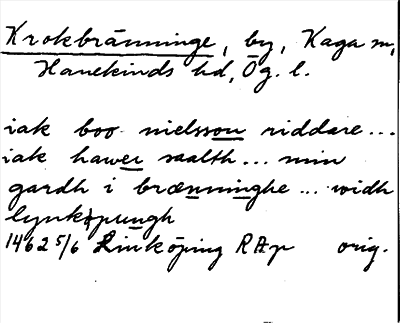 Krokbränninge, by, Kaga sn,
Hanekinds hd, Ög. l.
iak boo nielsson riddare...
iak hawer saalth... min
gardh i brænninghe... widh
lynkøpungh
1462 5/6 Linköping RAp orig.